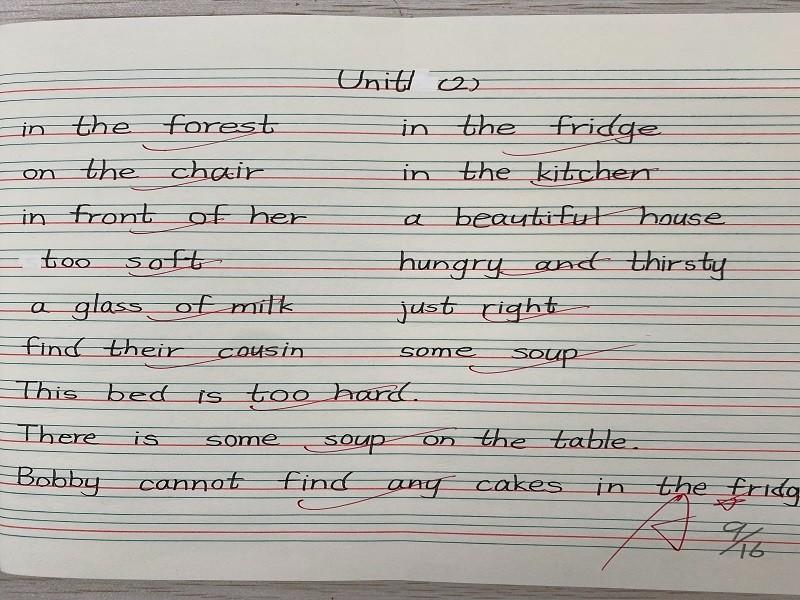 Unit1 (2)
in the forest in the fridge
on the chair in the kitchen
in front of her a beautiful house
too soft hungry and thirsty
a glass of milk just right
find their cousin some soup
This bed is too hard.
There is some soup on the table.
Bobby cannot find any cakes in the fridg
A
9/16